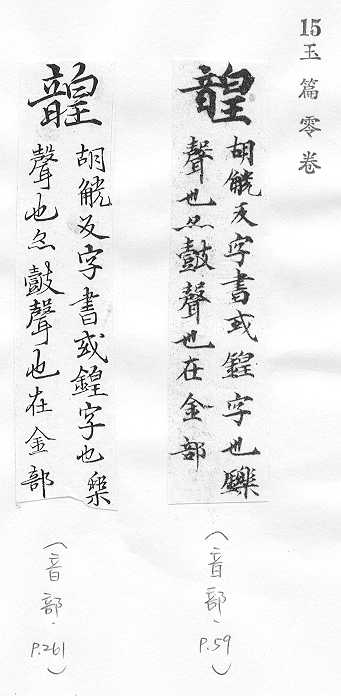 15
玉篇零卷
韹
胡觥反字書或鍠字也樂
聲也亦鼓聲也在金部
(音部、P.59)
韹
胡觥反字書或鍠字也樂
聲也亦鼓聲也在金部
(音部、P.261)